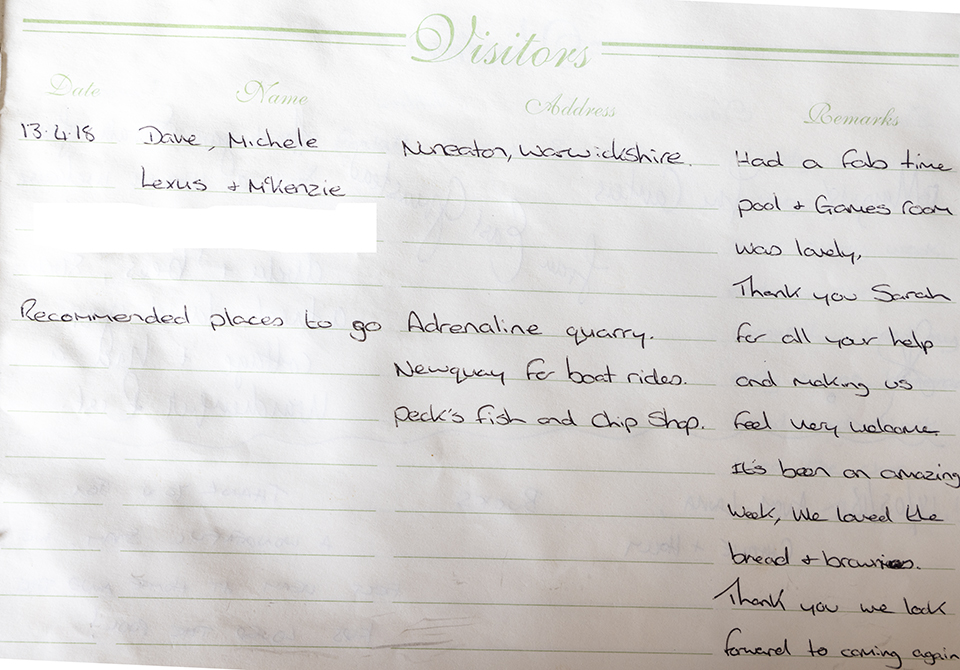 Visitors
Date Name Address Remarks
13.4.18 Dave, Michele Nuneaton, Warwickshire. Had a fab time
Lexus + McKenzie pool + Games room
was lovely,
Thank you Sarah
Recommended places to go Adrenaline quarry. for all your help
Newquay for boat rides. and making us
Peck's fish and Chip Shop. feel very welcome.
It's been an amazing
week, We loved the
bread + brownies.
Thank you we look
forward to coming again